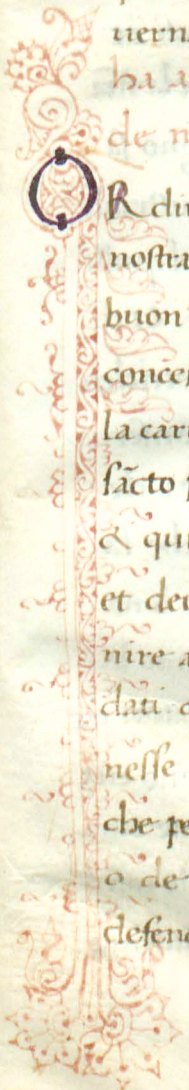 uern
ha la
de n
ORdin
nostra
buon
conce
la car
sācto
& qu
et deu
nire a
dati
nesse
che pe
o de
defen